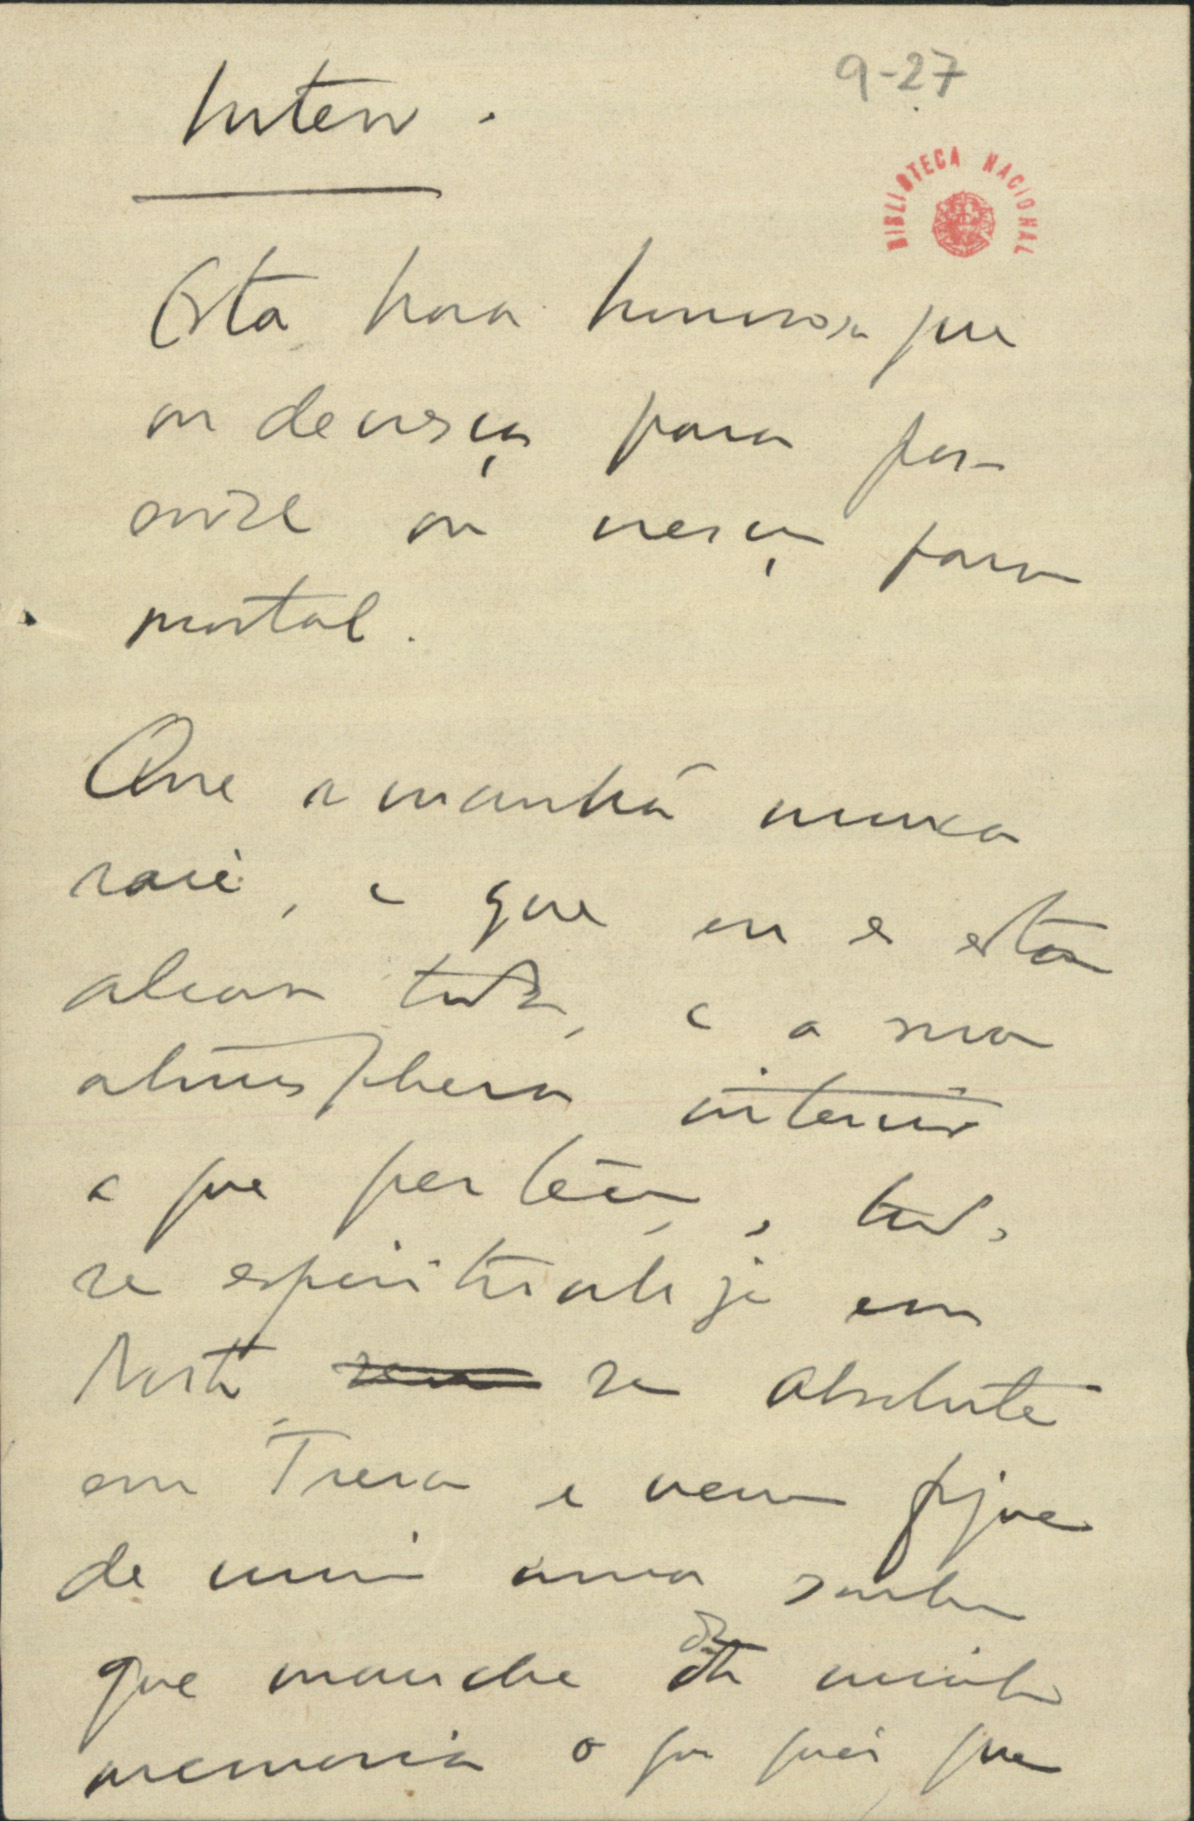 Interv.
9-27
BIBLIOTECA NACIONAL
Esta hora horrorosa que
ou decresça para pos-
sivel ou cresça para
mortal.
Que a manhã nunca
raie, e que eu e esta
alcova toda, e a sua
atmosphera interior
a que pertenço, tudo
se espiritualize em
Noite se absolute
em Treva e nem fique
de mim uma sombra
que manche da minha
memoria o que quer que